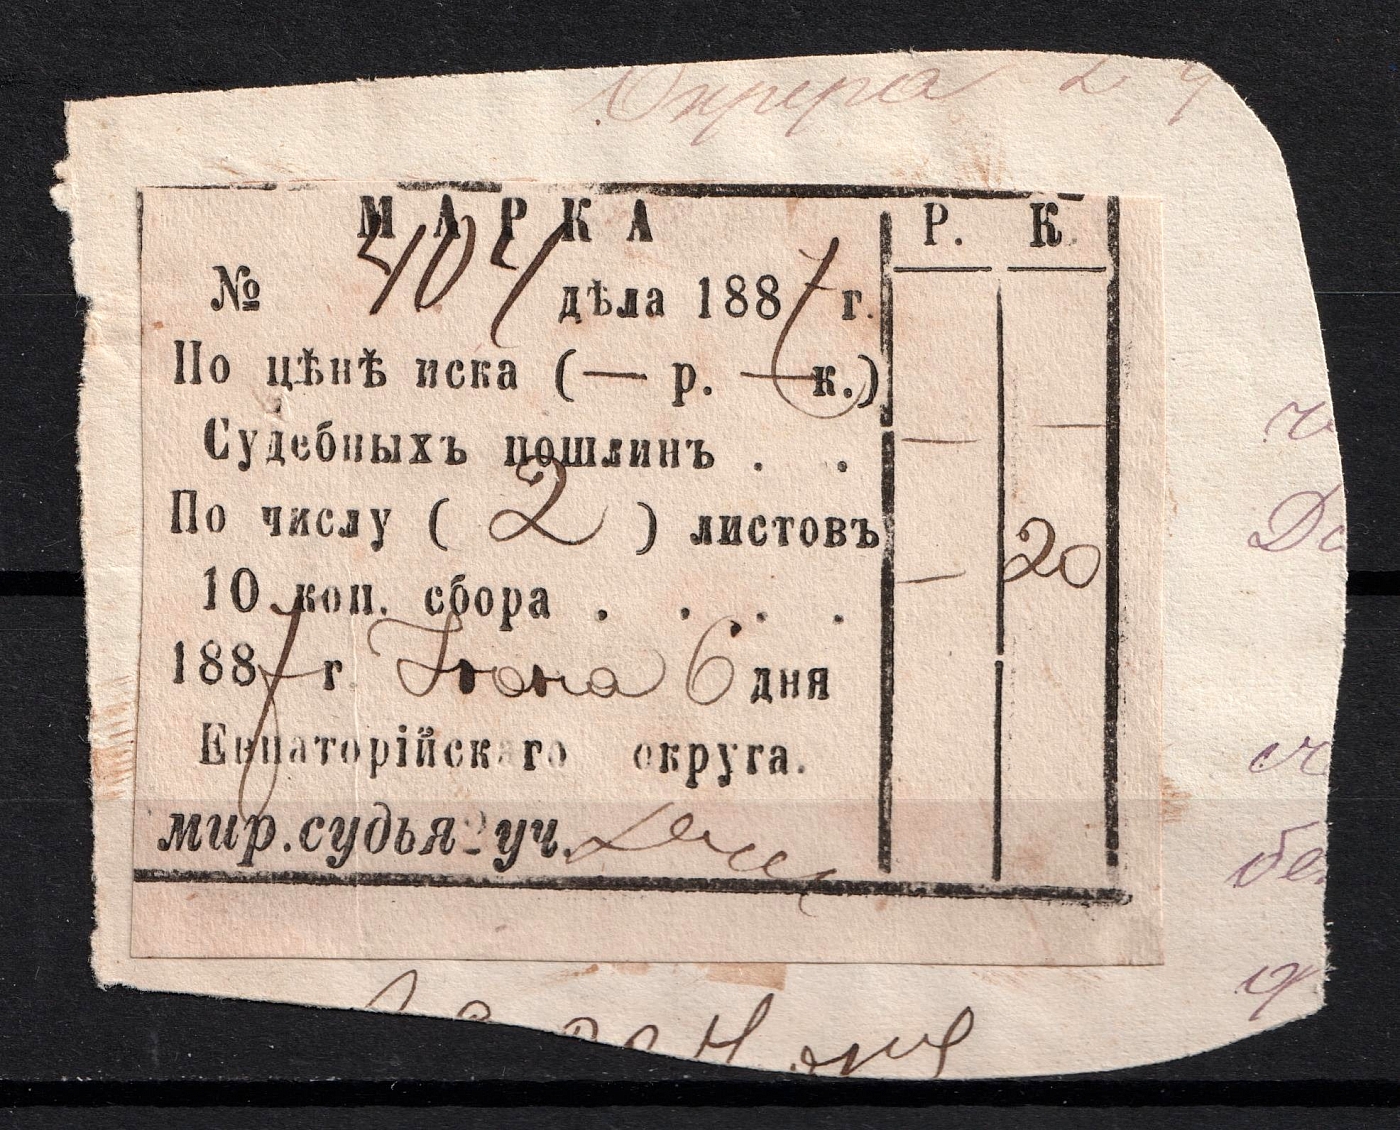 МАРКА Р. К.
№ 404 дѣла 1887 г.
По цѣнѣ иска (— р. — к.)
Судебныхъ пошлинъ . . — —
По числу ( 2 ) листовъ
10 коп. сбора . . . . — 20
1887 г. Іюня 6 дня
Евпаторійскаго округа.
мир. судья 2 уч.